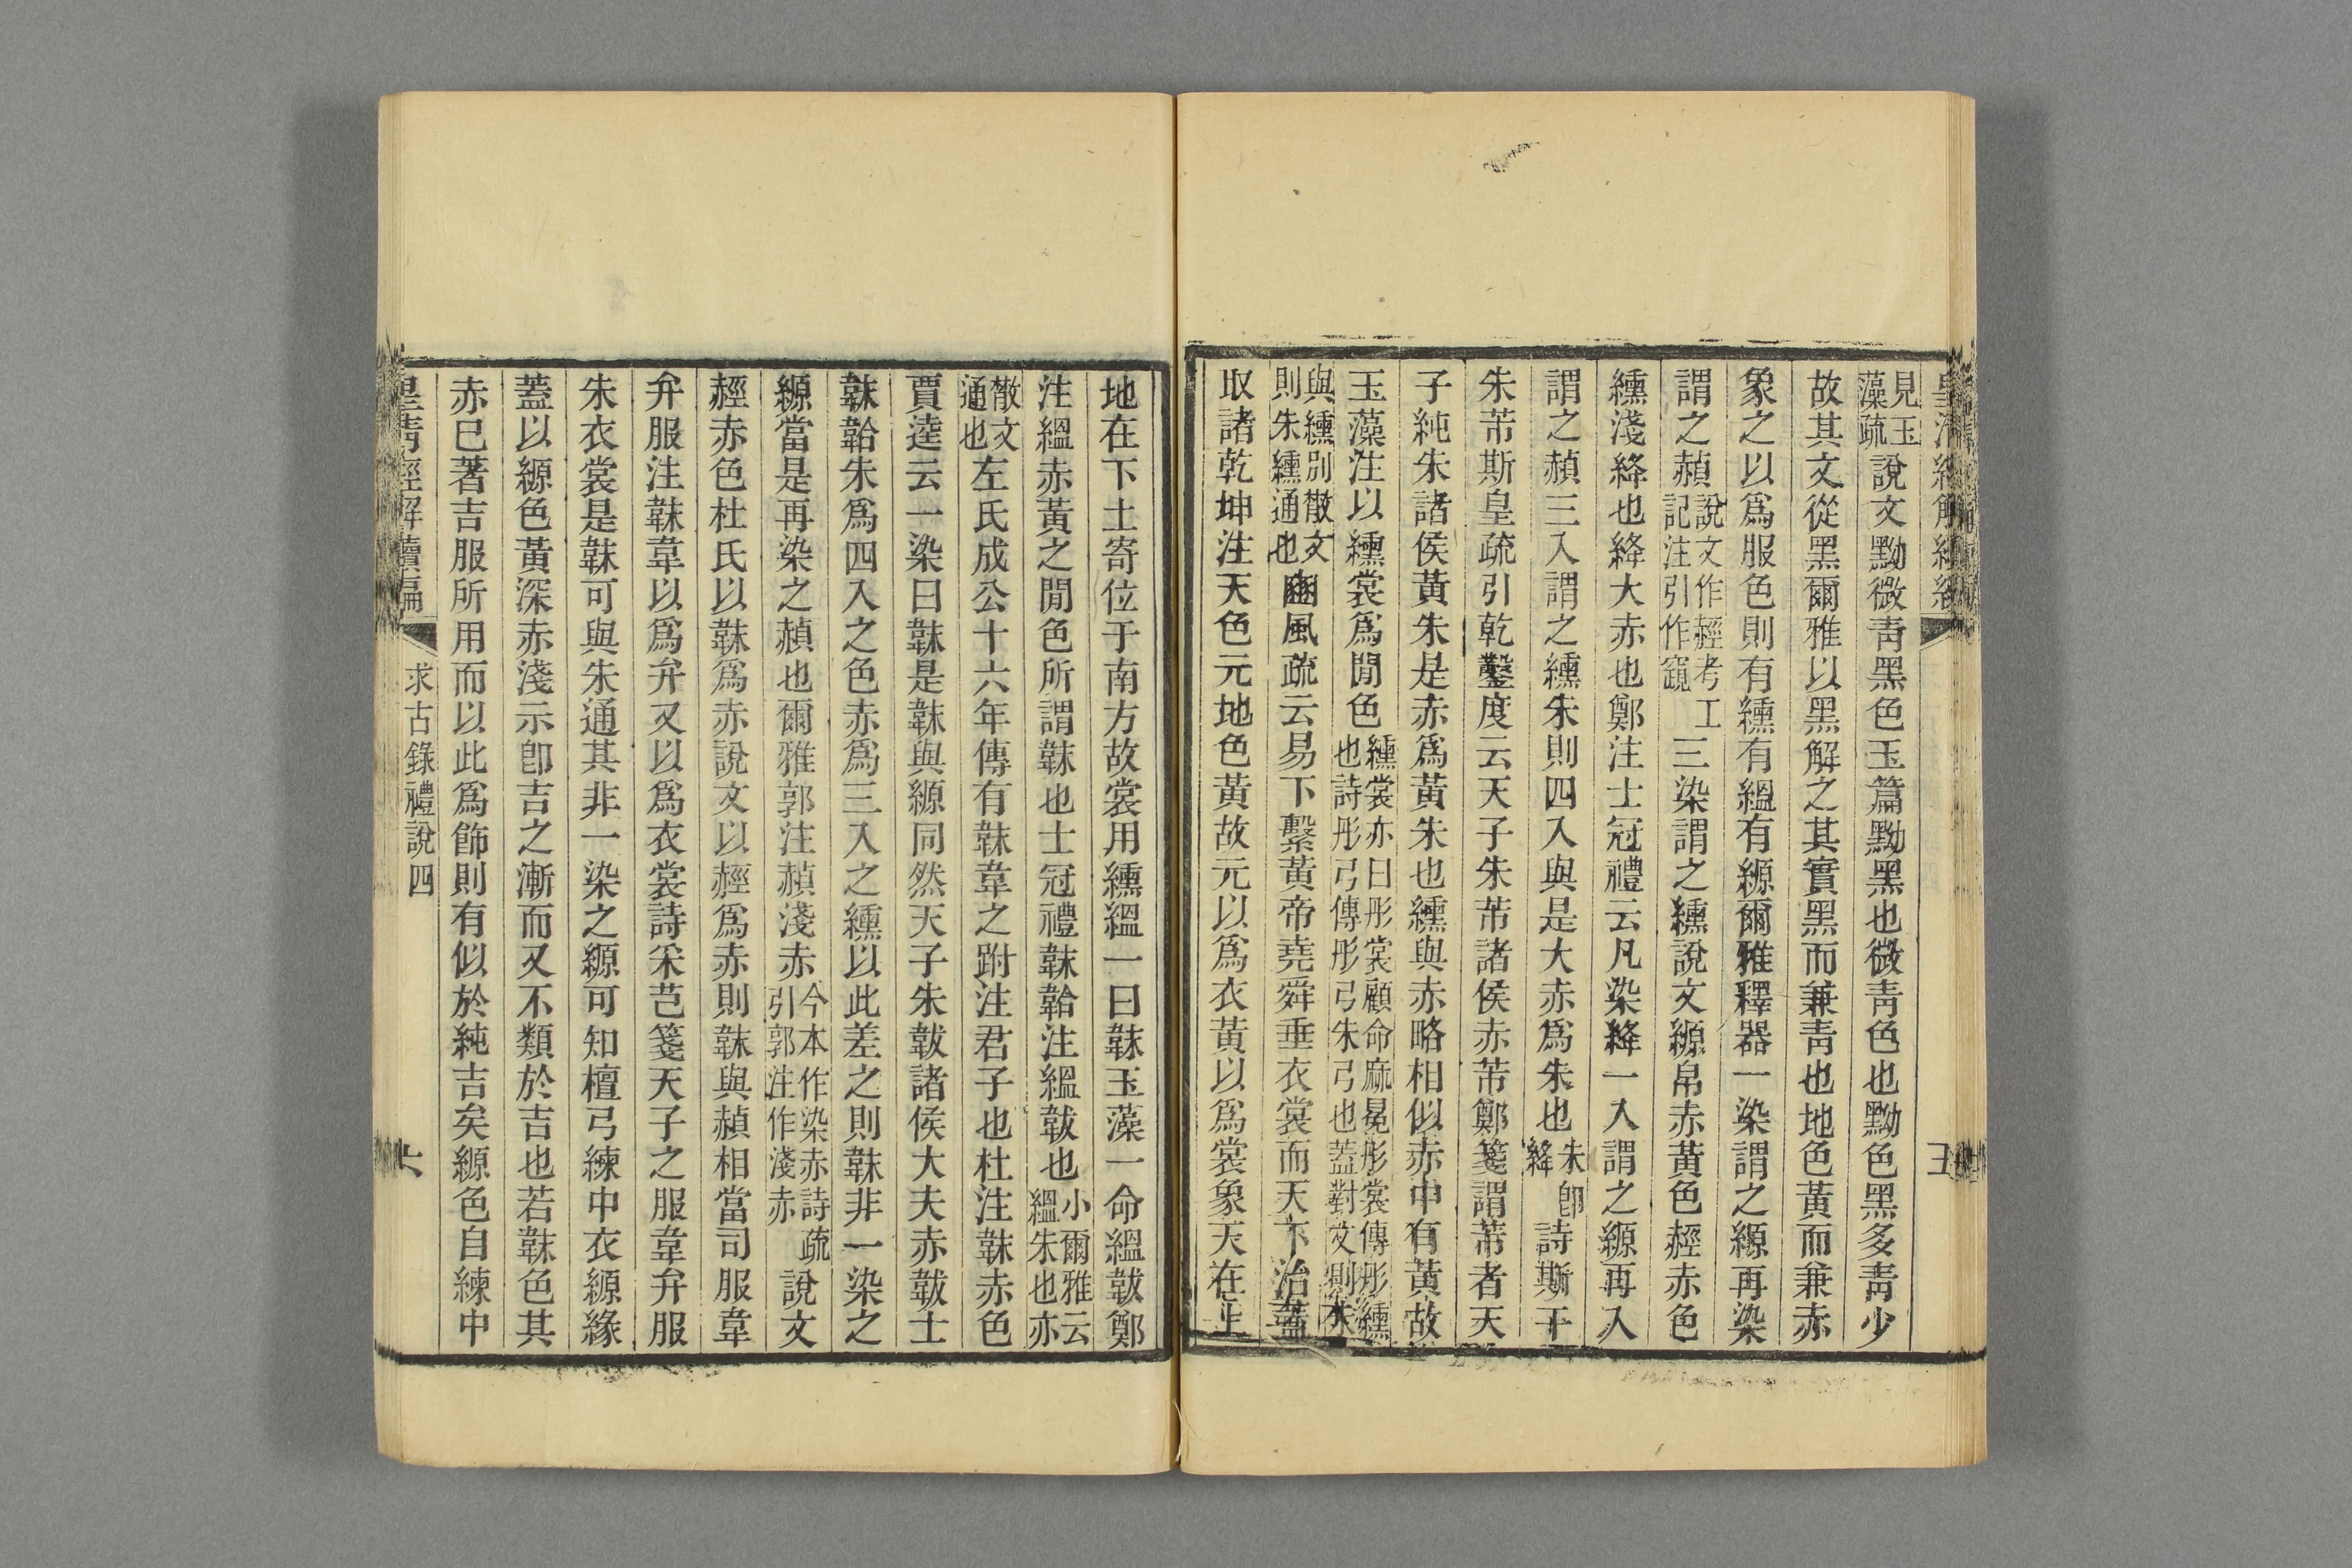 見玉藻疏說文黝微靑黑色玉篇黝黑也微靑色也黝色黑多靑少
故其文從黑爾雅以黑解之其實黑而兼靑也地色黃而兼赤
象之以爲服色則有纁有縕有縓爾雅釋器一染謂之縓再染
謂之赬說文作䞓考工記注引作竀三染謂之纁說文縓帛赤黃色䞓赤色
纁淺絳也絳大赤也鄭注士冠禮云凡染絳一入謂之縓再入
謂之赬三入謂之纁朱則四入與是大赤爲朱也朱卽絳詩斯干
朱芾斯皇疏引乾鑿度云天子朱芾諸侯赤芾鄭箋謂芾者天
子純朱諸侯黃朱是赤爲黃朱也纁與赤略相似赤中有黃故
玉藻注以纁裳爲閒色纁裳亦曰彤裳顧命麻冕彤裳傳彤纁也詩彤弓傳彤弓朱弓也蓋對文則朱
與纁別散文則朱纁通也豳風疏云易下繫黃帝堯舜垂衣裳而天下治蓋
取諸乾坤注天色元地色黃故元以爲衣黃以爲裳象天在上
地在下土寄位于南方故裳用纁縕一曰韎玉藻一命縕韍鄭
注縕赤黃之閒色所謂韎也士冠禮韎韐注縕韍也小爾雅云縕朱也亦
散文通也左氏成公十六年傳有韎韋之跗注君子也杜注韎赤色
賈逵云一染曰韎是韎與縓同然天子朱韍諸侯大夫赤韍士
韎韐朱爲四入之色赤爲三入之纁以此差之則韎非一染之
縓當是再染之赬也爾雅郭注赬淺赤今本作染赤詩疏引郭注作淺赤說文
䞓赤色杜氏以韎爲赤說文以䞓爲赤則韎與赬相當司服韋
弁服注韎韋以爲弁又以爲衣裳詩采芑箋天子之服韋弁服
朱衣裳是韎可與朱通其非一染之縓可知檀弓練中衣縓緣
蓋以縓色黃深赤淺示卽吉之漸而又不類於吉也若韎色其
赤已著吉服所用而以此爲飾則有似於純吉矣縓色自練中
皇淸經解續編
求古錄禮說四
六